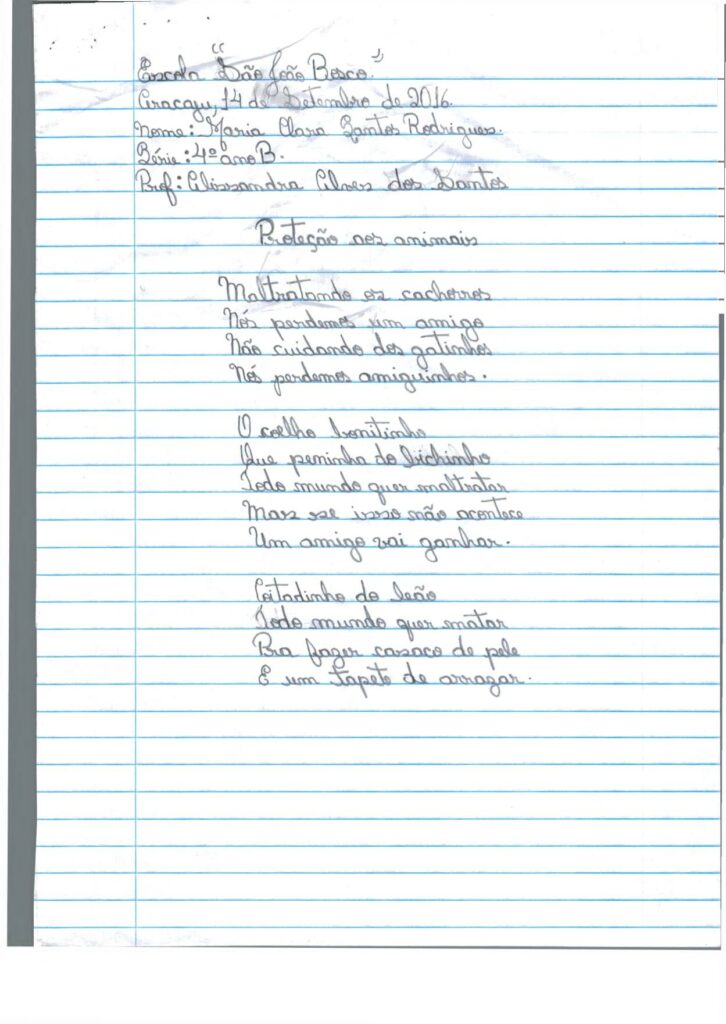 Escola "São João Bosco"
Aracaju, 14 de Setembro de 2016.
Nome: Maria Clara Santos Rodrigues.
Série: 4º ano B.
Prof: Alissandra Alves dos Santos
Proteção aos animais
Maltratando os cachorros
Nós perdemos um amigo
Não cuidando dos gatinhos
Nós perdemos amiguinhos.
O coelho bonitinho
Que peninha do bichinho
Todo mundo quer maltratar
Mas se isso não acontece
Um amigo vai ganhar.
Coitadinho do leão
Todo mundo quer matar
Pra fazer casaco de pele
E um tapete de arrazar.